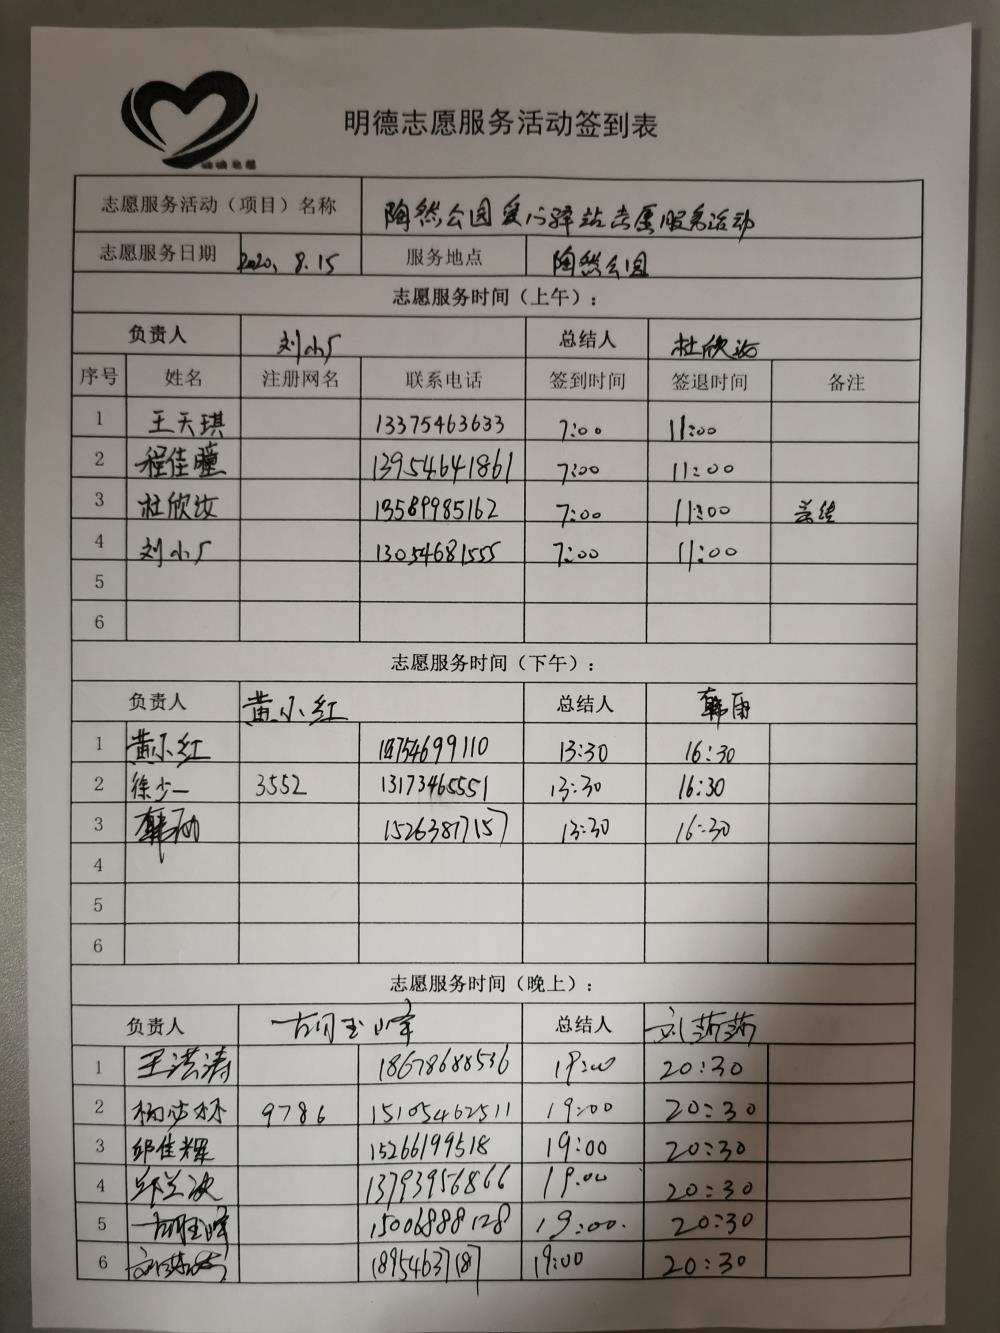 明德志愿服务活动签到表
志愿服务活动（项目）名称 陶然公园爱心驿站志愿服务活动
志愿服务日期 2020.8.15 服务地点 陶然公园
志愿服务时间（上午）：
负责人 刘小厂 总结人 杜欣汝
序号 姓名 注册网名 联系电话 签到时间 签退时间 备注
1 王天琪 13375463633 7:00 11:00
2 程佳瞳 13954641861 7:00 11:00
3 杜欣汝 13589985162 7:00 11:00 总结
4 刘小厂 13054681555 7:00 11:00
5
6
志愿服务时间（下午）：
负责人 黄小红 总结人 韩雨
1 黄小红 754699110 13:30 16:30
2 徐少一 3552 13173465551 13:30 16:30
3 韩雨 15263817157 13:30 16:30
4
5
6
志愿服务时间（晚上）：
负责人 胡玉峰 总结人 刘莎莎
1 王洪涛 18678688536 19:00 20:30
2 9786 15105462511 19:00 20:30
3 邱佳辉 15266199518 19:00 20:30
4 13793956866 19:00 20:30
5 胡玉峰 15006888128 19:00. 20:30
6 刘莎莎 18954637187 19:00 20:30